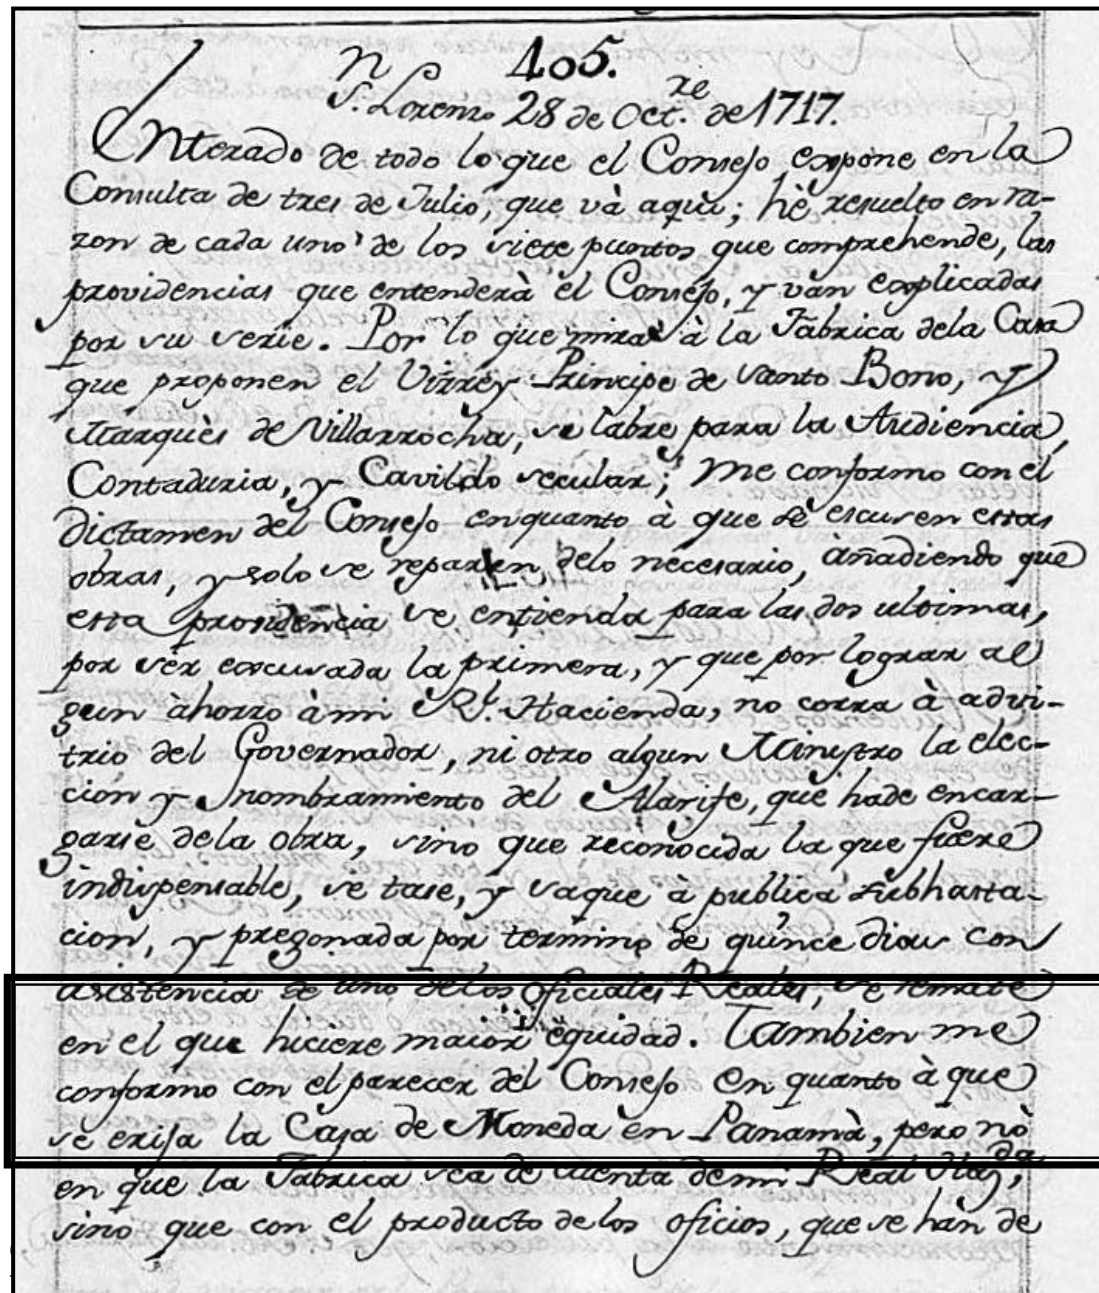 N 405.
S. Lorenzo 28 de Oct.re de 1717.
Enterado de todo lo que el Consejo expone en la
Consulta de tres de Julio, que và aqui; hè resuelto en ra-
zon de cada uno de los siete puntos que comprehende, las
providencias que entenderà el Consejo, y ván explicadas
por su serie. Por lo que mira à la Fabrica dela Casa
que proponen el Virrey Principe de Santo Bono, y
Marquès de Villarrocha, se labre para la Audiencia,
Contaduria, y Cavildo secular; me conformo con el
Dictamen del Consejo enquanto à que se escusen estas
obras, y solo se reparen delo necesario, añadiendo que
esta providencia se entienda para las dos ultimas,
por ser escusada la primera, y que por lograr al
gun àhorro àmi Rl. Hacienda, no corra à advi-
trio del Governador, ni otro algun Ministro la elec-
cion y nombramiento del Alarife, que hade encar-
garse dela obra, sino que reconocida la que fuere
indispensable, se tase, y saque à publica subhasta-
cion, y pregonada por termino de quince dias con
asistencia de uno delos Oficiales Reales, se remate
en el que hiciere maior equidad. Tambien me
conformo con el parecer del Consejo en quanto à que
se erija la Casa de Moneda en Panamà, pero nò
en que la Fabrica sea de cuenta demi Real Hazda,
sino que con el producto delos oficios, que se hàn de